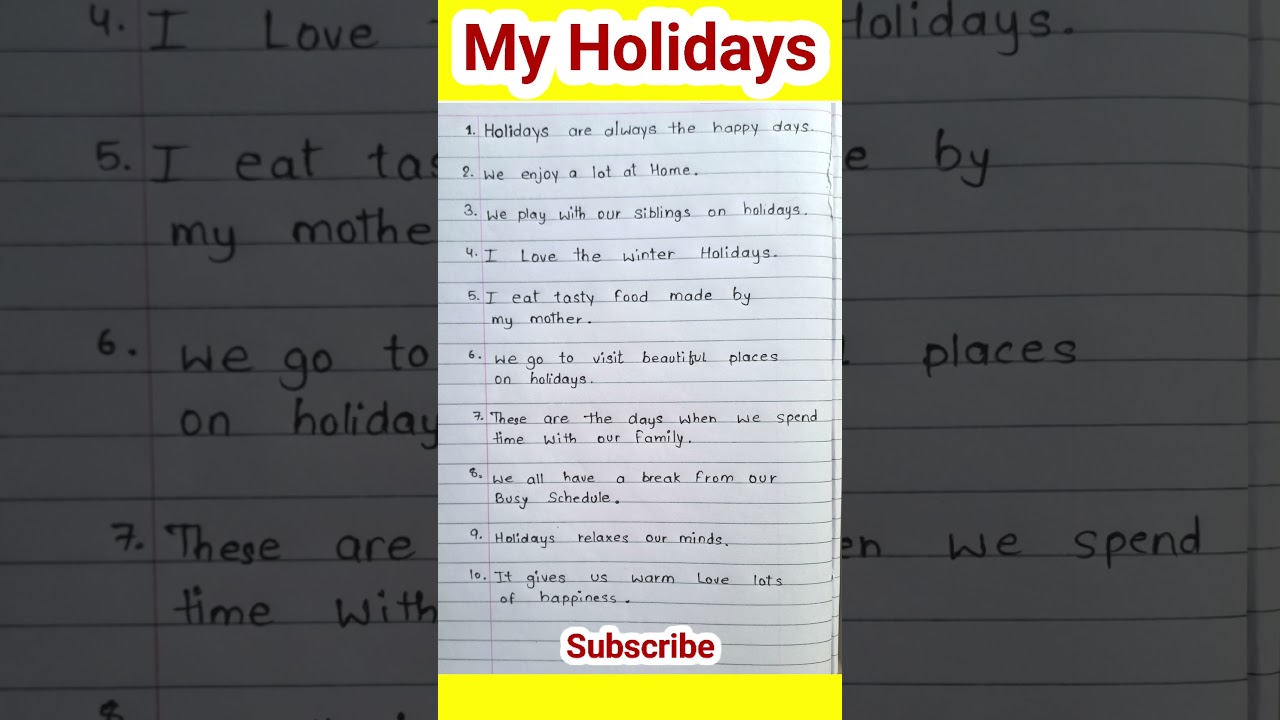 My Holidays
1. Holidays are always the happy days.
2. We enjoy a lot at Home.
3. We play with our siblings on holidays.
4. I Love the winter Holidays.
5. I eat tasty food made by
my mother.
6. We go to visit beautiful places
on holidays.
7. These are the days when we spend
time with our family.
8. We all have a break from our
Busy Schedule.
9. Holidays relaxes our minds.
10. It gives us warm Love lots
of happiness.
Subscribe
4. I Love
Holidays.
5. I eat tas
e by
my mothe
6. We go to
places
on holiday
7. These are
en we spend
time with
8